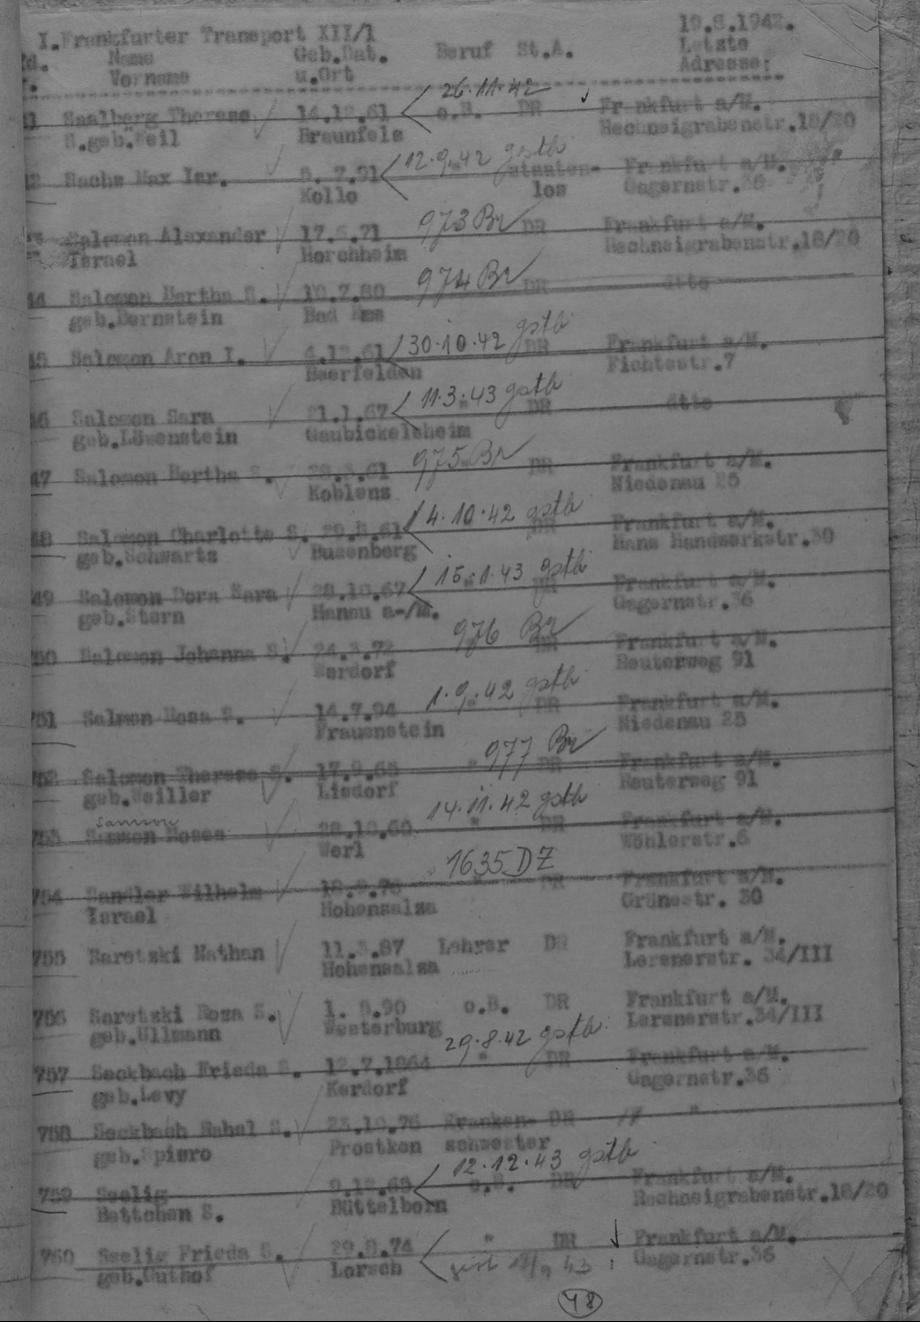 I.Frankfurter Transport XII/1 19.8.1942.
Name Geb.Dat. Beruf St.A. Letzte
Vorname u.Ort Adresse:
26.11.42
Saalberg Therese 14.12.61 o.B. DR Frankfurt a/M.
S.geb.Weil Braunfels Rechneigrabenstr.18/20
12.9.42 gstb
Sachs Max Isr. 5. 7.91 staaten- Frankfurt a/M.
Kollo los Gagernstr.36
973 Br
Salomon Alexander 17.5.71 DR Frankfurt a/M.
Israel Horchheim Rechneigrabenstr.18/20
974 Br
44 Salomon Bertha S. 10.7.80 DR dtto
geb.Bernstein Bad Ems
30.10.42 gstb
45 Salomon Aron I. 4.12.61 DR Frankfurt a/M.
Baerfelden Fichtestr.7
11.3.43 gstb
46 Salomon Sara 21.1.67 " DR dtto
geb.Löwenstein Gaubickelsheim
975 Br
47 Salomon Bertha S. DR Frankfurt a/M.
Koblenz Niedenau 25
4.10.42 gstb
48 Salomon Charlotte S. 29.8.61 DR Frankfurt a/M.
geb.Schwartz Busenberg Hans Handwerkstr.30
15.1.43 gstb
49 Salomon Dora Sara 28.10.67 DR Frankfurt a/M.
geb.Stern Hanau a-/M. Gagernstr.36
976 Br
50 Salomon Johanna S. 24.3.72 DR Frankfurt a/M.
Werdorf Reuterweg 91
1.9.42 gstb
751 Salmon Rosa S. 14.7.94 DR Frankfurt a/M.
Frauenstein Niedenau 25
977 Br
752 Salomon Therese S. 17.9.65 " DR Frankfurt a/M.
geb.Weiller Lisdorf Reuterweg 91
14.11.42 gstb
Samson
753 Samson Moses 28.10.60 " DR Frankfurt a/M.
Werl Wöhlerstr.6
1635 DZ
754 Sandler Wilhelm DR Frankfurt a/M.
Israel Hohensalza Grünestr. 30
755 Saretzki Nathan 11.3.87 Lehrer DR Frankfurt a/M.
Hohensalza Lersnerstr. 34/III
756 Saretzki Rosa S. 1. 8.90 o.B. DR Frankfurt a/M.
geb.Ullmann Westerburg Lersnerstr.34/III
29.8.42 gstb.
757 Seckbach Frieda S. 12.7.1864 " DR Frankfurt a/M.
geb.Levy Kerdorf Gagernstr.36
758 Seckbach Rahel S. 23.10.76 Kranken- DR " "
geb.Spiero Prostken schwester
12.12.43 gstb
759 Seelig 9.12.68 o.B. DR Frankfurt a/M.
Bettchen S. Büttelborn Rechneigrabenstr.18/20
760 Seelig Frieda S. 29.8.74 " DR Frankfurt a/M.
geb.Guthof Lorsch Gagernstr.36
48